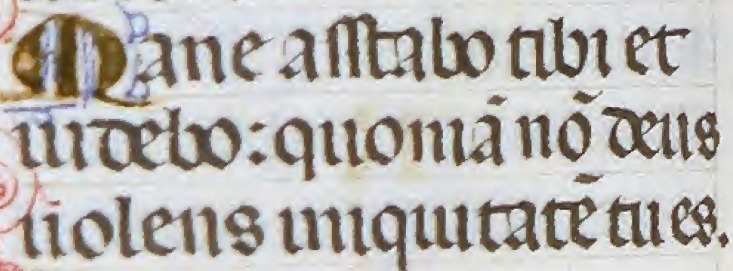 Mane asstabo tibi et
uidebo: quoniā nō deus
uolens iniquitatē tu es.